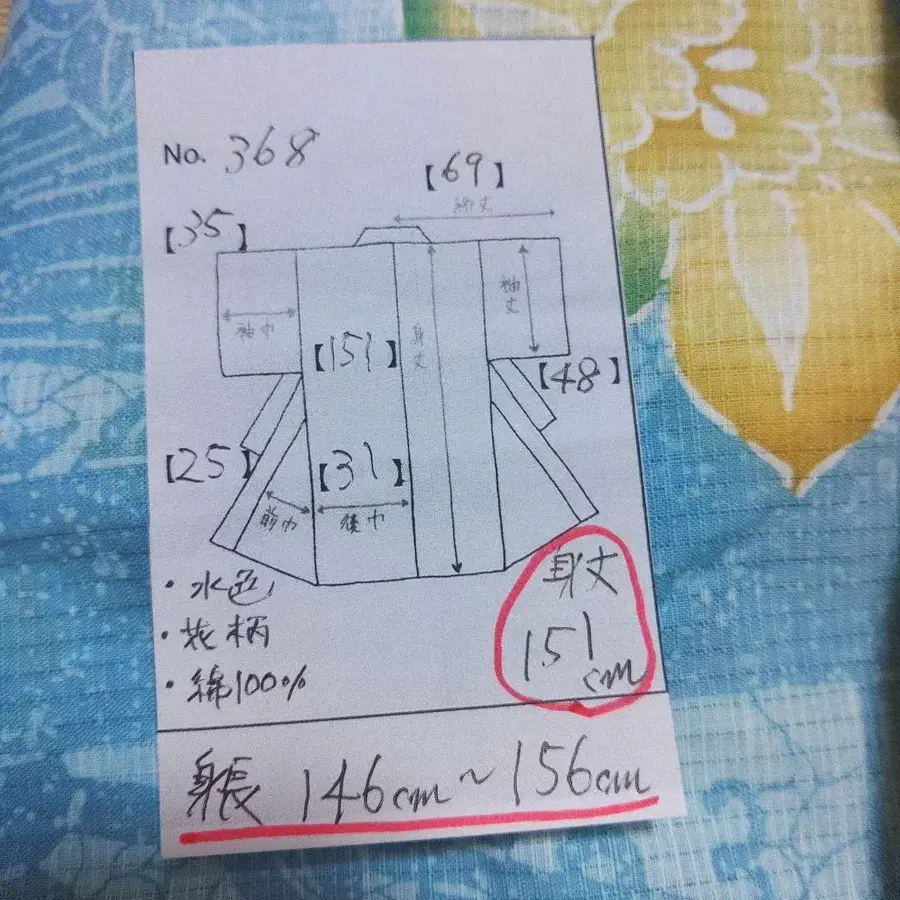 No. 368
【69】
裄丈
【35】
袖巾
袖丈
身丈
【151】
【48】
【25】
【31】
前巾
後巾
・水色
・花柄
・綿100%
身丈
151
cm
身長 146cm~156cm